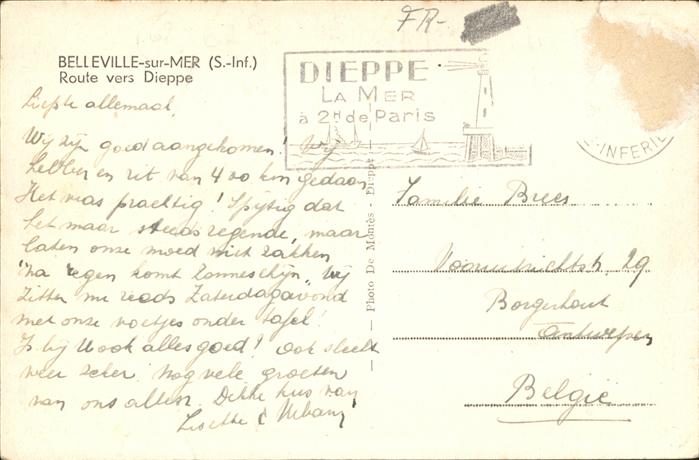 FR-
BELLEVILLE-sur-MER (S.-Inf.)
Route vers Dieppe
DIEPPE
LA MER
à 2h de Paris
E-INFERIE
Liefste allemaal,
Wij zijn goed aangekomen! Wij
hebben en rit van 400 km gedaan
Het was prachtig! Spijtig dat
het maar steeds regende, maar
laten onze moed niet zakken
"na regen komt zonneschijn" Wij
zitten nu reeds Zaterdagavond
met onze voetjes onder tafel!
Is bij U ook alles goed! Ook slecht
weer zeker. Nog vele groeten
van ons allen. Dikke kus van
Lisette &
— Photo De Momès - Dieppe —
Familie Brees
29
Borgerhout
Antwerpen
België